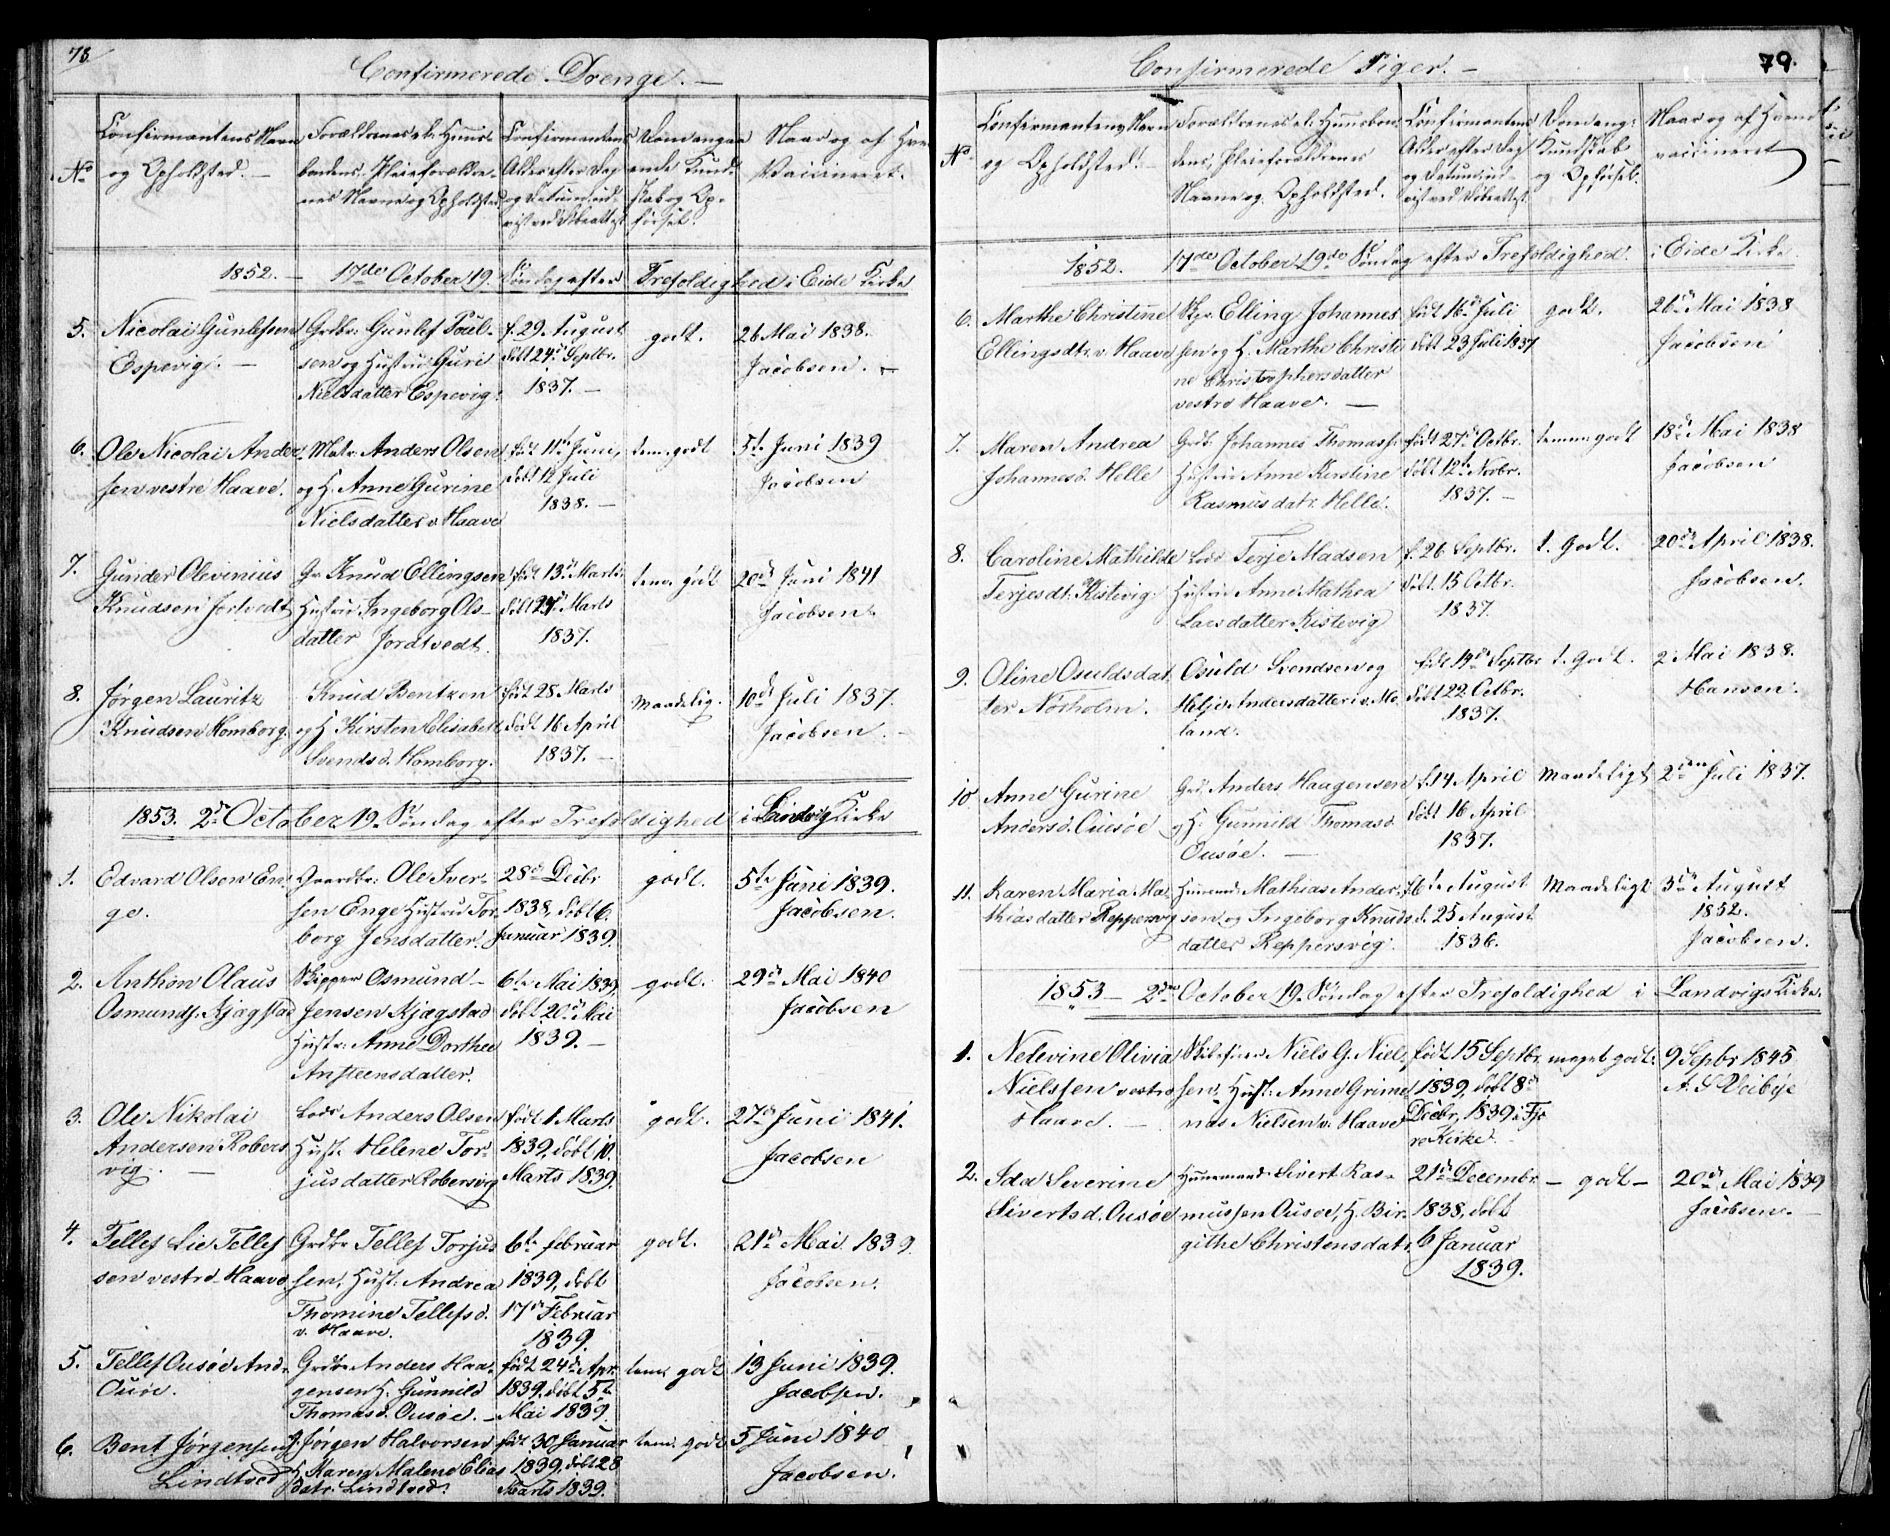 78
Confirmerede Drenge. —
No
Confirmantens Navn
og Opholdsted. —
Forældrenes el. Huus-
bondens, Pleieforældre-
nes Navne og Opholdsted
Confirmantens
Alder efter Dag
og Datum ud-
vist ved Døbeattest
Dom angaa-
ende Kund-
skab og Op-
førsel.
Naar og af Hvem
Vaccineret.
1852. — 17de October 19de Søndag efter Trefoldighed i Eide Kirke
5. Nicolai Gunlefsen
Espevig. —
Grdbr. Gunlef Poul-
sen og Hustru Guri
Nielsdatter Espevig.
f. 29. August
døbt 24de Septbr.
1837. —
godt.
26 Mai 1838.
Jacobsen. —
6. Ole Nicolai Ander-
sen vestre Haave.
Matr. Anders Olsen
og H. Anne Gurine
Nielsdatter v. Haave
født 11te Juni,
døbt 12 Juli
1838. —
tem. godt
5te Juni 1839
Jacobsen
7. Gunder Olevinius
Knudsen Jortvedt
Gr. Knud Ellingsen
Hustru Ingeborg Ols-
datter Jordtvedt.
født 13de Marts
døbt 27de Marts
1837.
tem. godt
20de Juni 1841
Jacobsen.
8. Jørgen Lauritz
Knudsen Homborg.
Knud Bentzen
og H. Kirsten Elisabeth
Svendsd. Homborg.
født 28. Marts
døbt 16 April
1837. —
Maadelig.
10de Juli 1837.
Jacobsen.
1853. 2de October 19de Søndag efter Trefoldighed i Landvig Kirke
1. Edvard Olsen En-
ge.
Gaardbr. Ole Iver-
sen Enge Hustru Tor-
borg Jensdatter.
28de Decbr
1838, døbt 6.
Januar 1839.
godt.
5te Juni 1839.
Jacobsen.
2. Anthon Olaus
Osmunds. Kjægstad
Skipper Osmund
Jensen Kjægstad
Hustr. Anne Dorthee
Ansteensdatter.
6te Mai 1839,
døbt 20de Mai
1839. —
godt.
29de Mai 1840
Jacobsen
3. Ole Nikolai
Andersen Robers-
vig. —
Lods Anders Olsen
Hust. Helene Tor-
jusdatter Robersvig
født 1 Marts
1839, døbt 10.
Marts 1839.
godt.
27de Juni 1841.
Jacobsen
4. Tellef Lie Tellef-
sen vestre Haave
Grdbr Tellef Torjus-
sen, Hust. Andrea
Thomine Tellefsd.
v. Haave.
6te februar
1839, døbt
17de Februar
1839.
godt.
21de Mai 1839.
Jacobsen.
5. Tellef Ousøe And.
Ousøe.
Grdbr Anders Haa-
gensen H. Gunnild
Thomasd. Ousøe. —
født 24de Apr.
1839, døbt 5te
Mai 1839.
tem. godt
13 Juni 1839.
Jacobsen.
6. Bent Jørgensen
Lindtved
Jørgen Halvorsen
H. Maren Malene Elias-
datr. Lindtved.
født 30 Januar
1839, døbt 28
Marts 1839.
tem. godt
5 Juni 1840
Jacobsen.
Confirmerede Piger. —
79.
No
Confirmantens Navn
og Opholdsted. —
Forældrenes el. Huusbon-
dens, Pleieforældrenes
Navne og Opholdsted.
Confirmantens
Alder efter Dag
og Datum ud-
vist ved Døbeattest.
Dom ang.
Kundskab
og Opførsel.
Naar og af Hvem
vaccineret
1852. 17de October 19de Søndag efter Trefoldighed i Eide Kirke
6. Marthe Christine
Ellingsdtr. v. Haave
Skpr. Elling Johannes-
sen og H. Marthe Christi-
ne Christophersdatter
vestre Haave. —
født 16de Juli
døbt 23 Juli 1837
godt.
26de Mai 1838
Jacobsen
7. Maren Andrea
Johannesd. Helle
Grdb. Johannes Thomass.
Hustru Anne Kirstine
Rasmusdatr. Helle.
født 27de Octbr.
døbt 12te Novbr.
1837. —
temm. godt
18de Mai 1838
Jacobsen
8. Caroline Mathilde
Terjesdt. Kistevig.
Lods Terje Madsen
Hustru Anne Mathea
Larsdatter Kistevig
f. 26 Septbr.
døbt 15 Octbr.
1837.
t. Godt.
20de April 1838.
Jacobsen.
9. Oline Osuldsdat-
ter Nørholm.
Osuld Svendsen og
Helje Andersdatter i v. Mo-
land.
født 19de Septbr
døbt 22. Octbr.
1837.
t. Godt.
2 Mai 1838.
Hansen.
10 Anne Gurine
Andersd. Ousøe
Grd. Anders Haagensen
og H. Gunnild Thomasd.
Ousøe. —
f. 14 April
døbt 16 April
1837.
Maadeligt
2den Juli 1837.
11. Karen Maria Ma-
thiasdatter Reppersvig
Huusmd. Mathias Ander-
sen og Ingeborg Knuds-
datter Reppersvig.
f. 6te August
d. 25 August
1836.
Maadeligt
3de August
1852.
Jacobsen.
1853 — 2den October 19de Søndag efter Trefoldighed i Landvigs Kirke.
1. Netevine Olivia
Nielssen vestre
Haave. —
Skibsfører Niels G. Niel-
sen. Hust. Anne Grime-
næs Nielsen v. Haave
født 15 Septbr.
1839, døbt 8de
Decbr, 1839 i Fjæ-
re Kirke.
meget godt.
9 Sepbr 1845
2. Ida Severine
Sivertsd. Ousøe
Huusmand Sivert Ras-
mussen Ousøe, H. Bir-
githe Christensdatr.
21de Decembr
1838, døbt
6 Januar
1839.
— godt —
20de Mai 1839
Jacobsen.